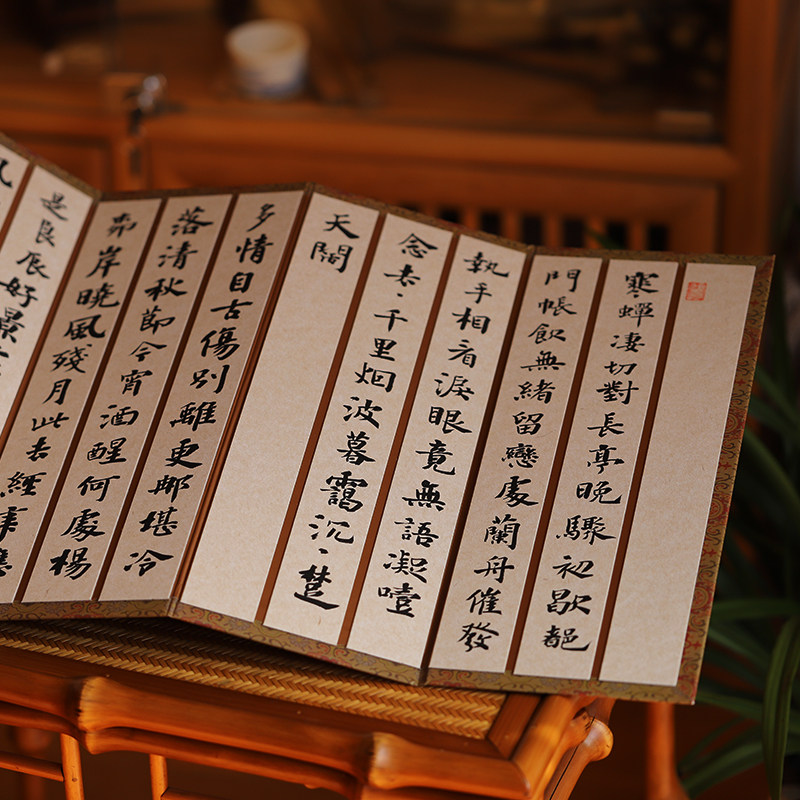 寒蟬凄切對長亭晚驟初歇都
門帳飲無緒留戀處蘭舟催發
執手相看淚眼竟無語凝噎
念去、千里烟波暮靄沉、楚
天闊
多情自古傷別離更那堪冷
落清秋節今宵酒醒何處楊
柳岸曉風殘月此去經年應
是良辰好景